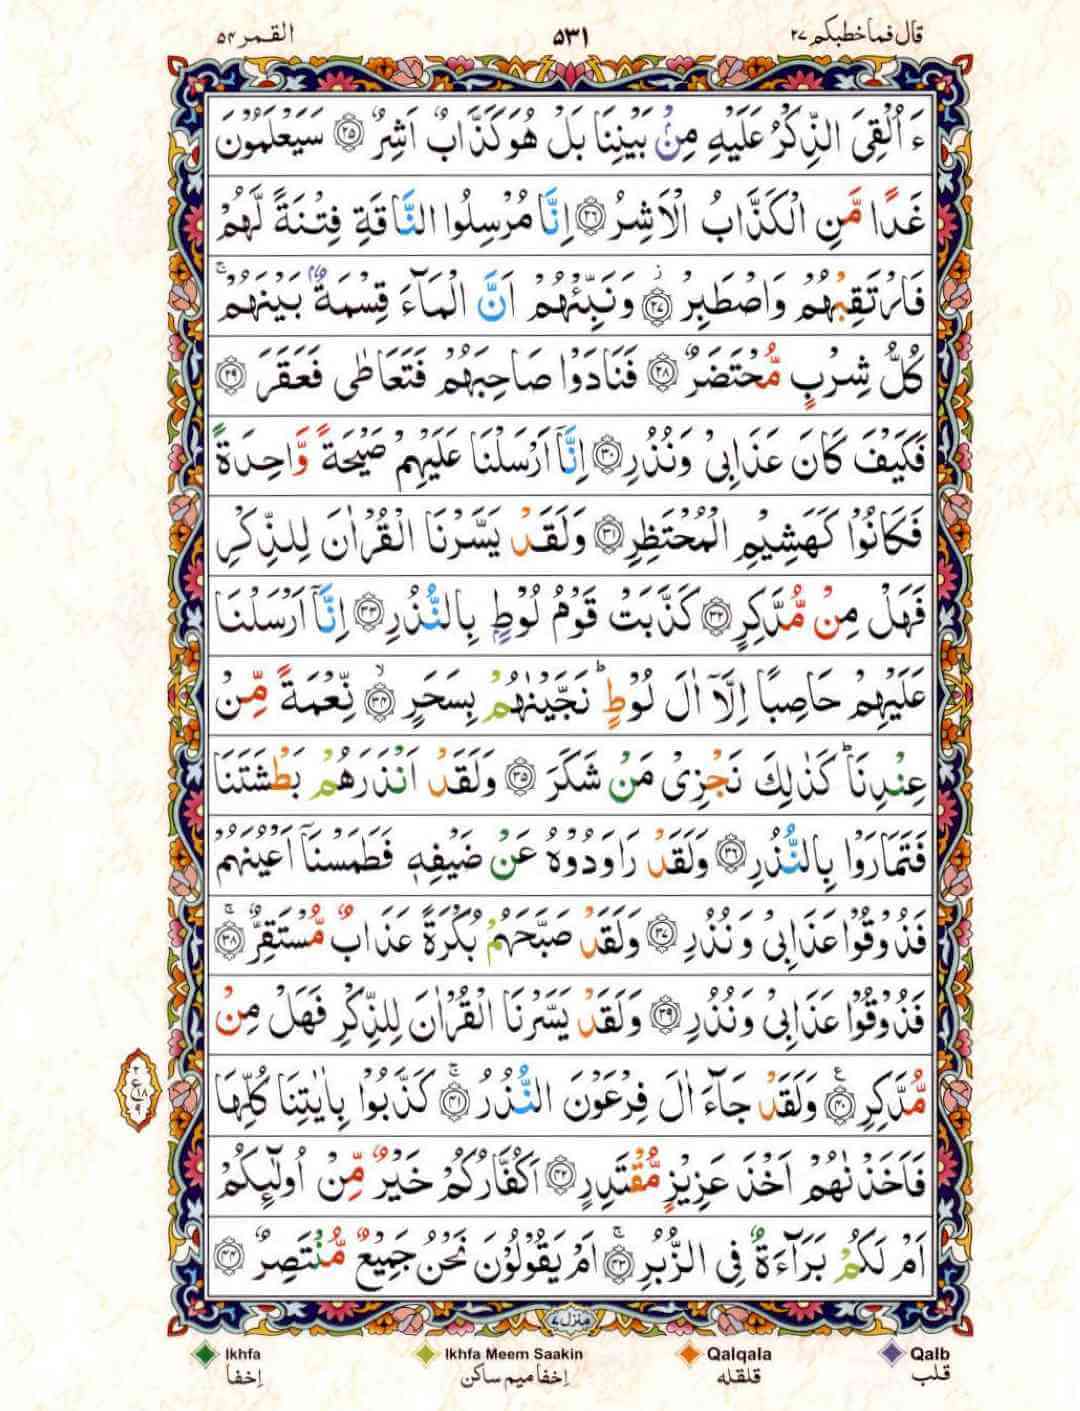 قال فما خطبكم ٢٧ ٥٣١ القمر ٥٤
ءَاُلْقِیَ الذِّكْرُ عَلَیْهِ مِنْۢ بَیْنِنَا بَلْ هُوَ كَذَّابٌ اَشِرٌ ۝٢٥ سَیَعْلَمُوْنَ
غَدًا مَّنِ الْكَذَّابُ الْاَشِرُ ۝٢٦ اِنَّا مُرْسِلُوا النَّاقَةِ فِتْنَةً لَّهُمْ
فَارْتَقِبْهُمْ وَاصْطَبِرْ ۝٢٧ؗ وَنَبِّئْهُمْ اَنَّ الْمَآءَ قِسْمَةٌۢ بَیْنَهُمْ ۚ
كُلُّ شِرْبٍ مُّحْتَضَرٌ ۝٢٨ فَنَادَوْا صَاحِبَهُمْ فَتَعَاطٰی فَعَقَرَ ۝٢٩
فَكَیْفَ كَانَ عَذَابِیْ وَنُذُرِ ۝٣٠ اِنَّاۤ اَرْسَلْنَا عَلَیْهِمْ صَیْحَةً وَّاحِدَةً
فَكَانُوْا كَهَشِیْمِ الْمُحْتَظِرِ ۝٣١ وَلَقَدْ یَسَّرْنَا الْقُرْاٰنَ لِلذِّكْرِ
فَهَلْ مِنْ مُّدَّكِرٍ ۝٣٢ كَذَّبَتْ قَوْمُ لُوْطٍۭ بِالنُّذُرِ ۝٣٣ اِنَّاۤ اَرْسَلْنَا
عَلَیْهِمْ حَاصِبًا اِلَّاۤ اٰلَ لُوْطٍ ؕ نَجَّیْنٰهُمْ بِسَحَرٍ ۝٣٤ۙ نِّعْمَةً مِّنْ
عِنْدِنَا ؕ كَذٰلِكَ نَجْزِیْ مَنْ شَكَرَ ۝٣٥ وَلَقَدْ اَنْذَرَهُمْ بَطْشَتَنَا
فَتَمَارَوْا بِالنُّذُرِ ۝٣٦ وَلَقَدْ رَاوَدُوْهُ عَنْ ضَیْفِهٖ فَطَمَسْنَاۤ اَعْیُنَهُمْ
فَذُوْقُوْا عَذَابِیْ وَنُذُرِ ۝٣٧ وَلَقَدْ صَبَّحَهُمْ بُكْرَةً عَذَابٌ مُّسْتَقِرٌّ ۝٣٨ۚ
فَذُوْقُوْا عَذَابِیْ وَنُذُرِ ۝٣٩ وَلَقَدْ یَسَّرْنَا الْقُرْاٰنَ لِلذِّكْرِ فَهَلْ مِنْ
مُّدَّكِرٍ ۝٤٠ع وَلَقَدْ جَآءَ اٰلَ فِرْعَوْنَ النُّذُرُ ۝٤١ۚ كَذَّبُوْا بِاٰیٰتِنَا كُلِّهَا
٢ ع ١٨ ٩
فَاَخَذْنٰهُمْ اَخْذَ عَزِیْزٍ مُّقْتَدِرٍ ۝٤٢ اَكُفَّارُكُمْ خَیْرٌ مِّنْ اُولٰٓئِكُمْ
اَمْ لَكُمْ بَرَآءَةٌ فِی الزُّبُرِ ۝٤٣ۚ اَمْ یَقُوْلُوْنَ نَحْنُ جَمِیْعٌ مُّنْتَصِرٌ ۝٤٤
منزل ٧
Ikhfa Ikhfa Meem Saakin Qalqala Qalb
اِخفا اِخفا میم ساکن قلقله قلب